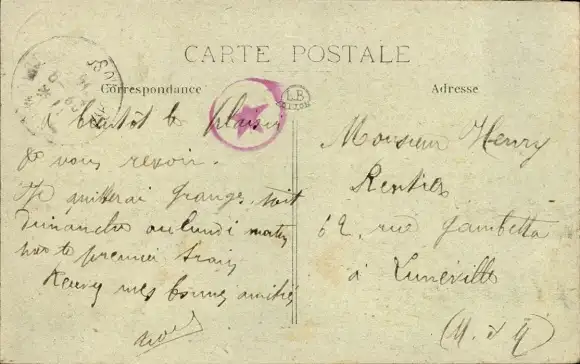 CARTE POSTALE
Correspondance
Adresse
L.B
A bientôt le plaisir
de vous revoir.
Je quitterai Granges soit
Dimanche ou lundi matin
par le premier train
mes bonnes amitiés
Monsieur Henry
Rentier
62, rue Gambetta
à Lunéville
(M. et M)